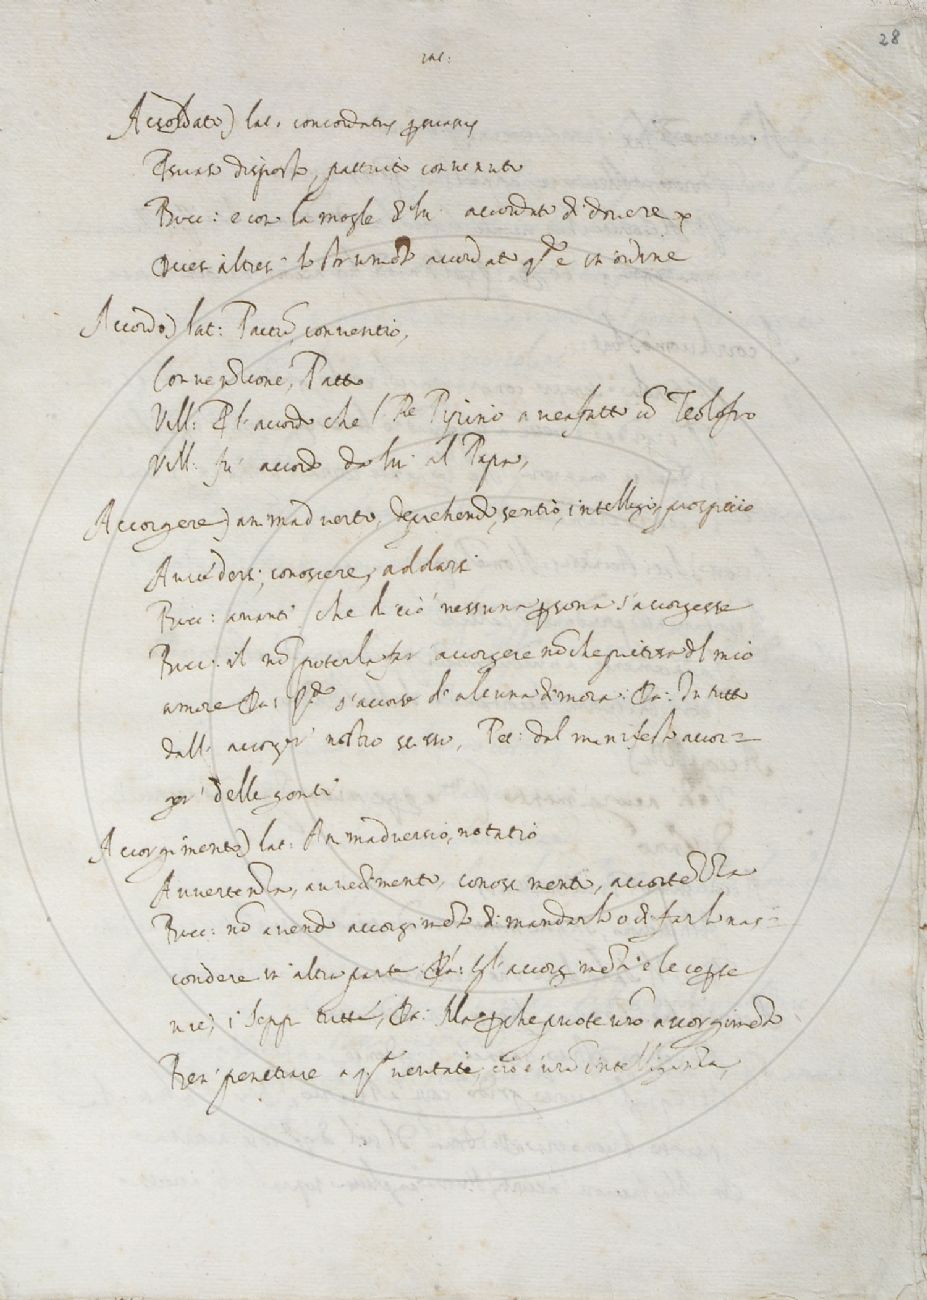 28
Accordato) lat.
disposto, pattuito convenuto
Bocc: e con la mogle di lui accordato di douere
altresi lo strumento accordato è in ordine
Accordo) lat: Pactũ, conuentio,
Conuenzione, Patto
Vill: l'accordo che l' Re auea fatto cõ
Vill: fu accordo da lui al Papa,
Accorgere) animaduerto, deprehendo, sentio, intelligo, prospicio
Auuedersi, conoscere, addarsi
Bocc: auanti che di ciò nessuna psona s'accorgesse
Bocc: il nõ poterla far accorgere nõ che pietosa del mio
amore Da: s'accorse d'alcuna dimora: Da: In tutto
dall' accorger nostro scisso, Pet: dal manifesto accor=
ger' delle genti
Accorgimento) lat: Animaduersio, notatio
Auuertenza, auuedimento, conoscimento, accortezza
Bocc: nõ auendo accorgimẽto di mandarlo o di farlo nas=
condere in altra parte Da: gl'accorgimẽti e le coperte
vie, i seppi tutte, Da: Ma pche puote uro accorgimẽto
Ben' penetrare a qᵃ veritate, ciò è urã intelligenza,